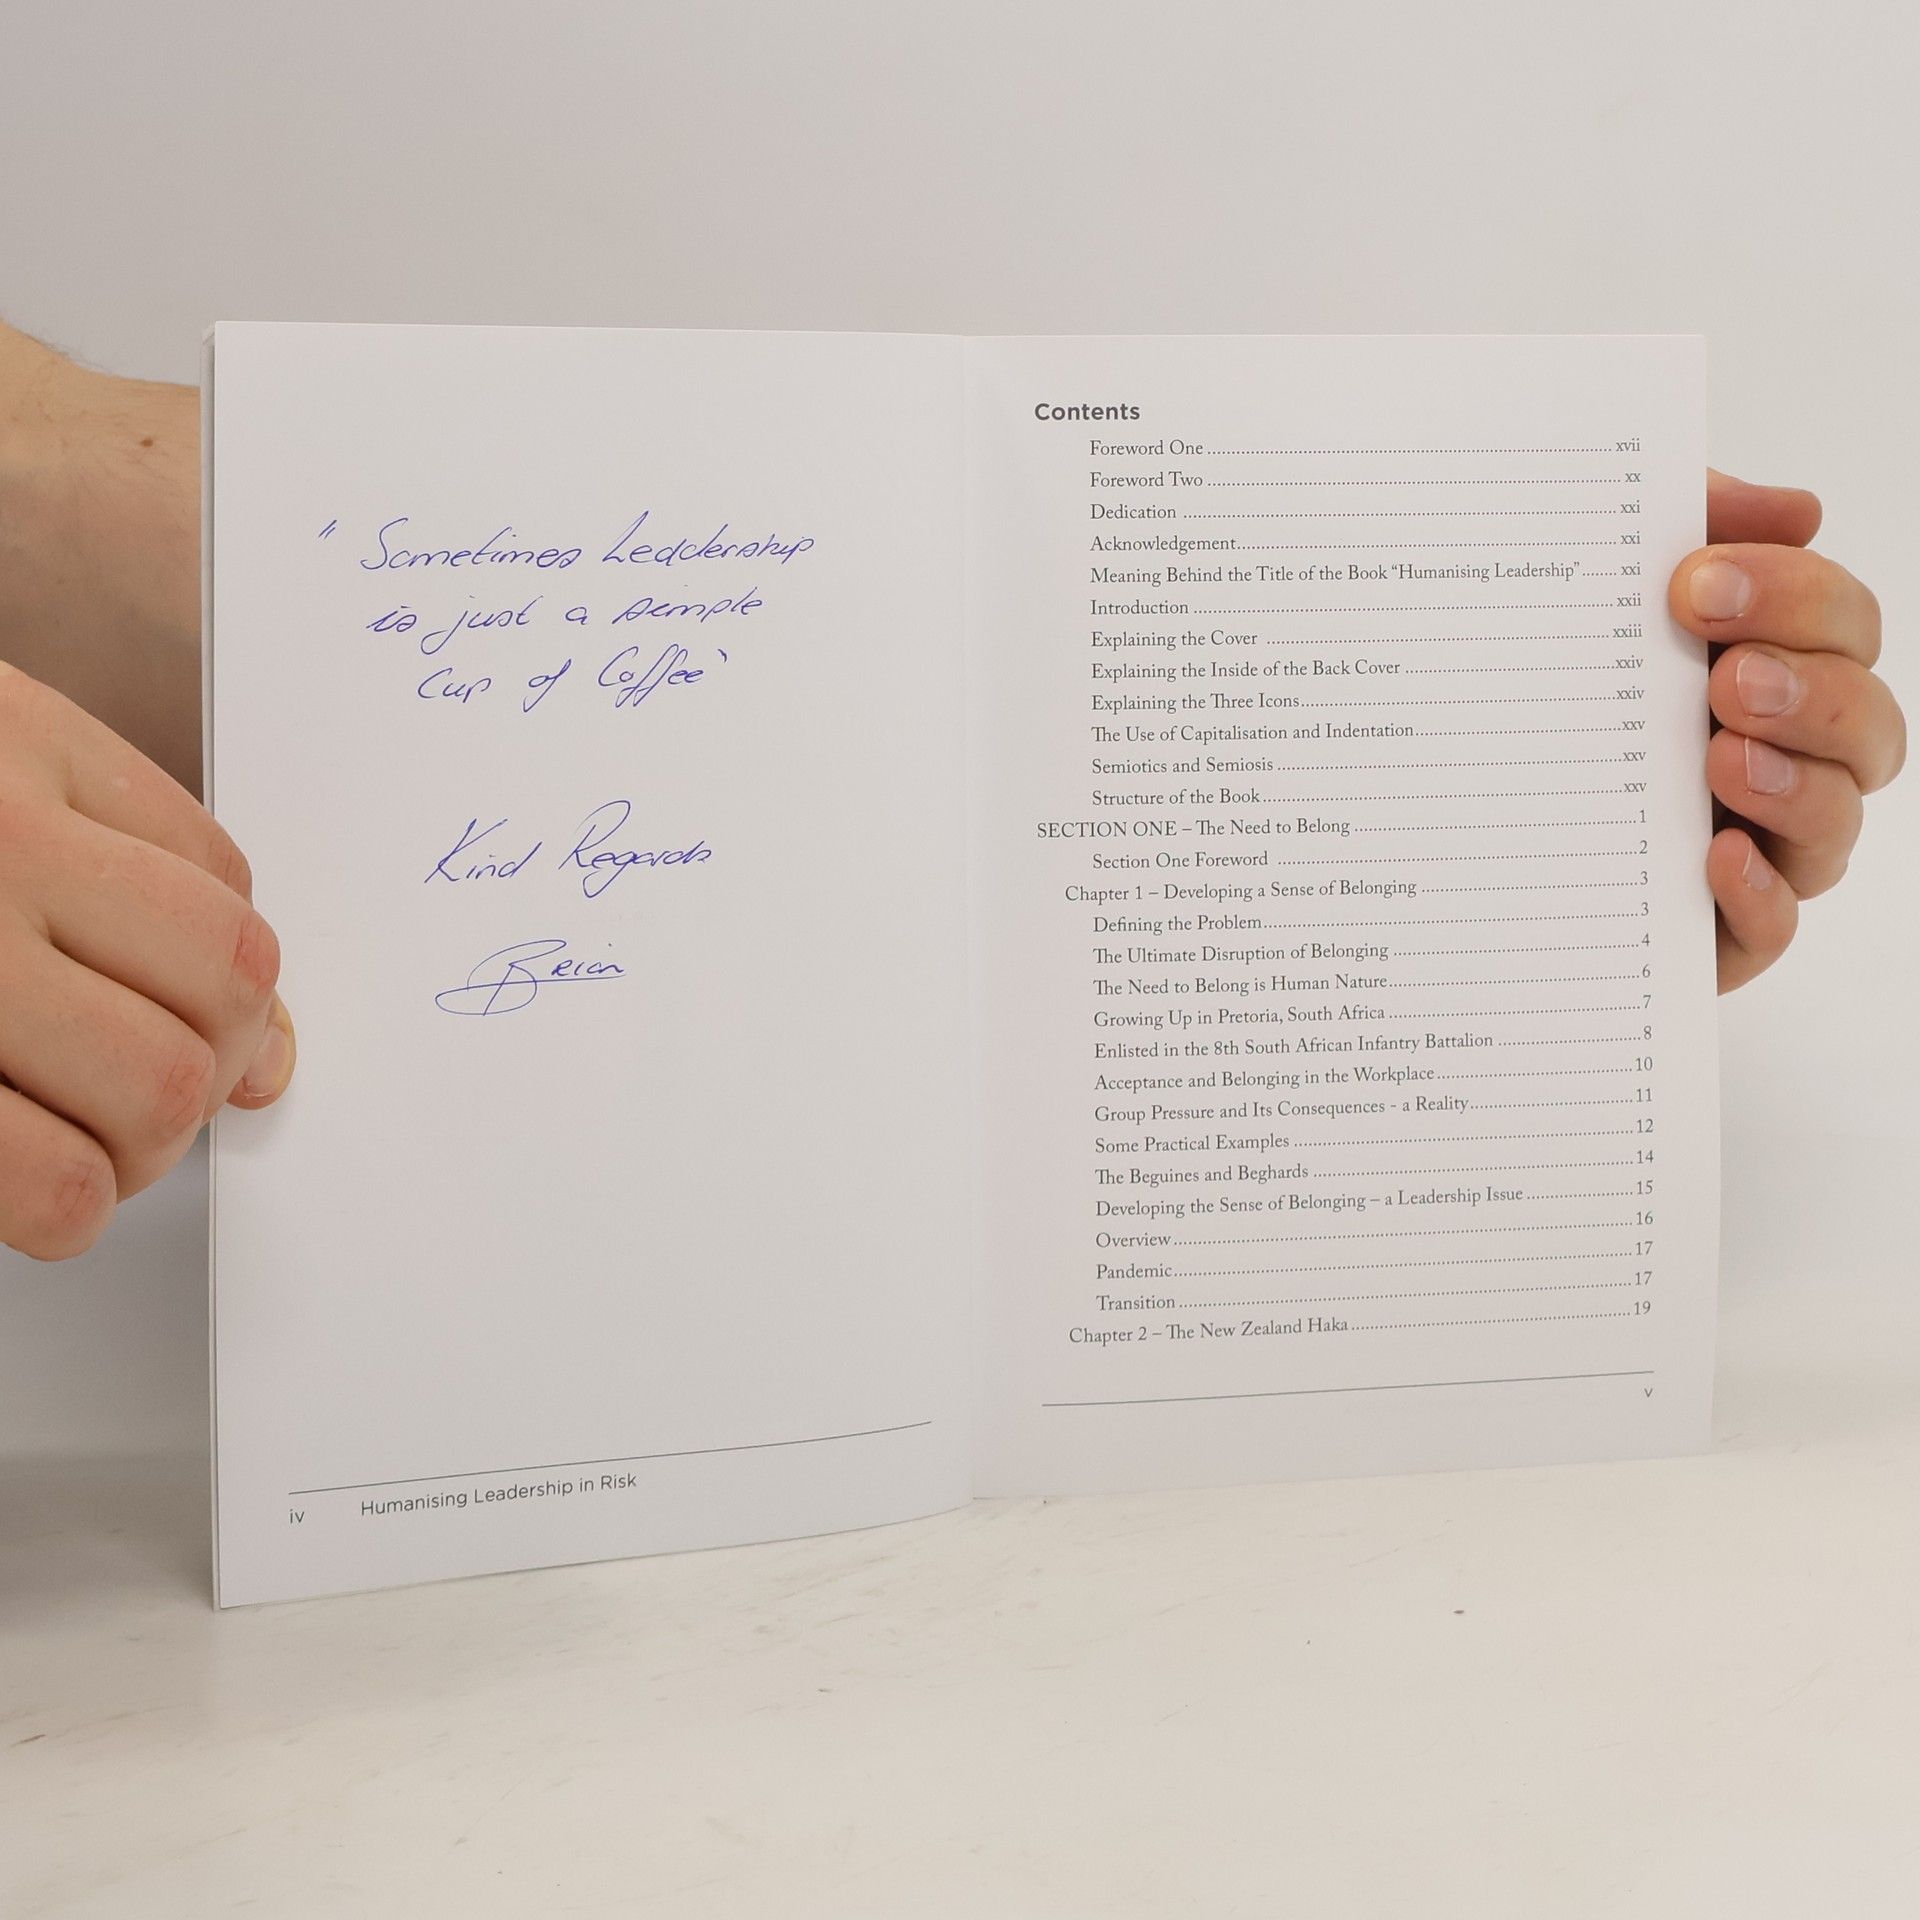 " Sometimes Leadership
is just a simple
Cup of Coffee"
Kind Regards
Brian
iv Humanising Leadership in Risk
Contents
Foreword One ........ xvii
Foreword Two ........ xx
Dedication ........ xxi
Acknowledgement ........ xxi
Meaning Behind the Title of the Book “Humanising Leadership” ........ xxi
Introduction ........ xxii
Explaining the Cover ........ xxiii
Explaining the Inside of the Back Cover ........ xxiv
Explaining the Three Icons ........ xxiv
The Use of Capitalisation and Indentation ........ xxv
Semiotics and Semiosis ........ xxv
Structure of the Book ........ xxv
SECTION ONE – The Need to Belong ........ 1
Section One Foreword ........ 2
Chapter 1 – Developing a Sense of Belonging ........ 3
Defining the Problem ........ 3
The Ultimate Disruption of Belonging ........ 4
The Need to Belong is Human Nature ........ 6
Growing Up in Pretoria, South Africa ........ 7
Enlisted in the 8th South African Infantry Battalion ........ 8
Acceptance and Belonging in the Workplace ........ 10
Group Pressure and Its Consequences - a Reality ........ 11
Some Practical Examples ........ 12
The Beguines and Beghards ........ 14
Developing the Sense of Belonging – a Leadership Issue ........ 15
Overview ........ 16
Pandemic ........ 17
Transition ........ 17
Chapter 2 – The New Zealand Haka ........ 19
v